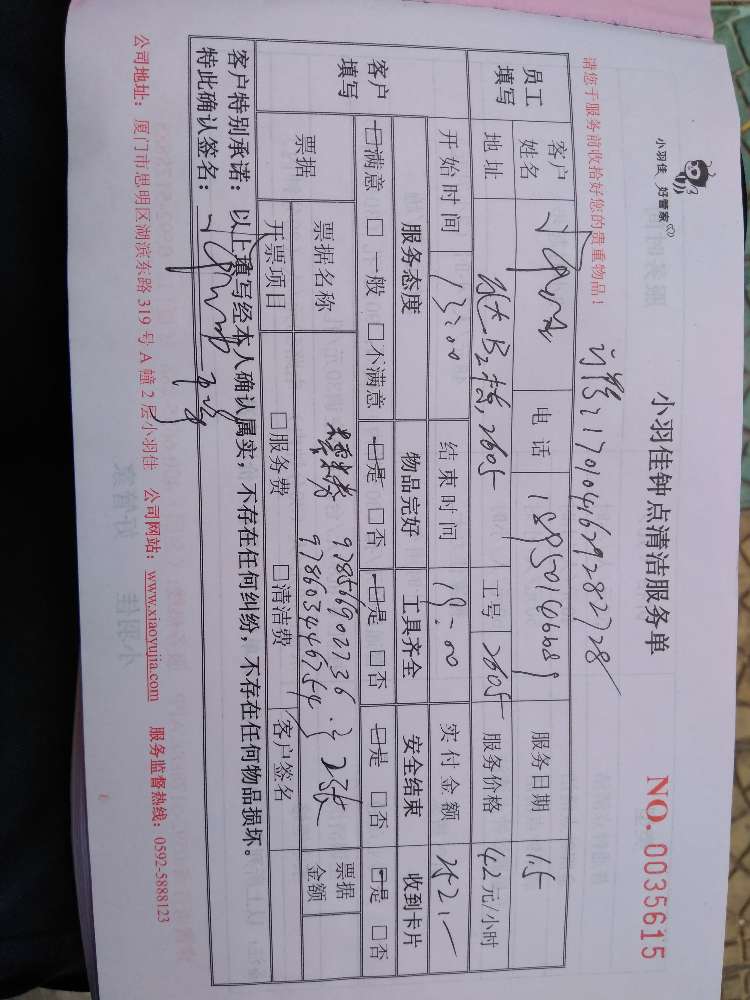 小羽佳 好管家
小羽佳钟点清洁服务单
NO. 0035615
请您于服务前收拾好您的贵重物品!
170104629282728
员工填写 客户姓名 电话 18950146689 服务日期 1.5
地址 B2栋,2605 工号 2605 服务价格 42元/小时
开始时间 13:00 结束时间 19:00 实付金额 252.—
客户填写 服务态度 物品完好 工具齐全 安全结束 收到卡片
满意 □一般 □不满意 是 □否 是 □否 是 □否 是 □否
票据 票据名称 978566902736 票据金额
978603446754 2张
开票项目 □服务费 □清洁费 客户签名
客户特别承诺:以上填写经本人确认属实,不存在任何纠纷,不存在任何物品损坏。
特此确认签名:
公司地址:厦门市思明区湖滨东路319号A幢2层小羽佳 公司网站:www.xiaoyujia.com 服务监督热线:0592-5888123